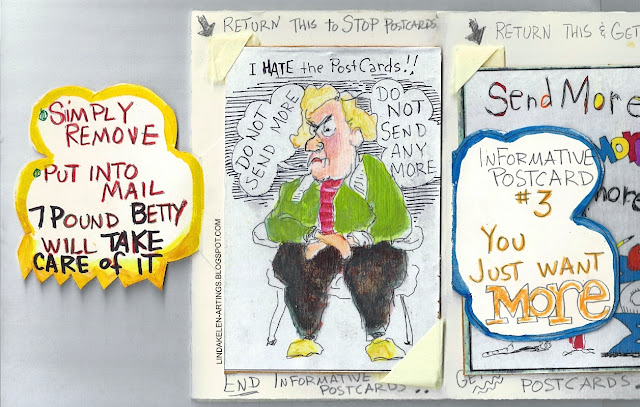 SIMPLY
REMOVE
PUT INTO
MAIL
7 POUND BETTY
WILL TAKE
CARE of IT
RETURN THIS to STOP POSTCARDS
I HATE the PostCards!!
DO NOT
SEND MORE
DO
NOT
SEND
ANY
MORE
LINDAKELEN-ARTINGS.BLOGSPOT.COM
END INFORMATIVE POSTCARDS!!
RETURN THIS & GET
Send More
INFORMATIVE
POSTCARD
#3
YOU
JUST WANT
MORE
more
POSTCARDS